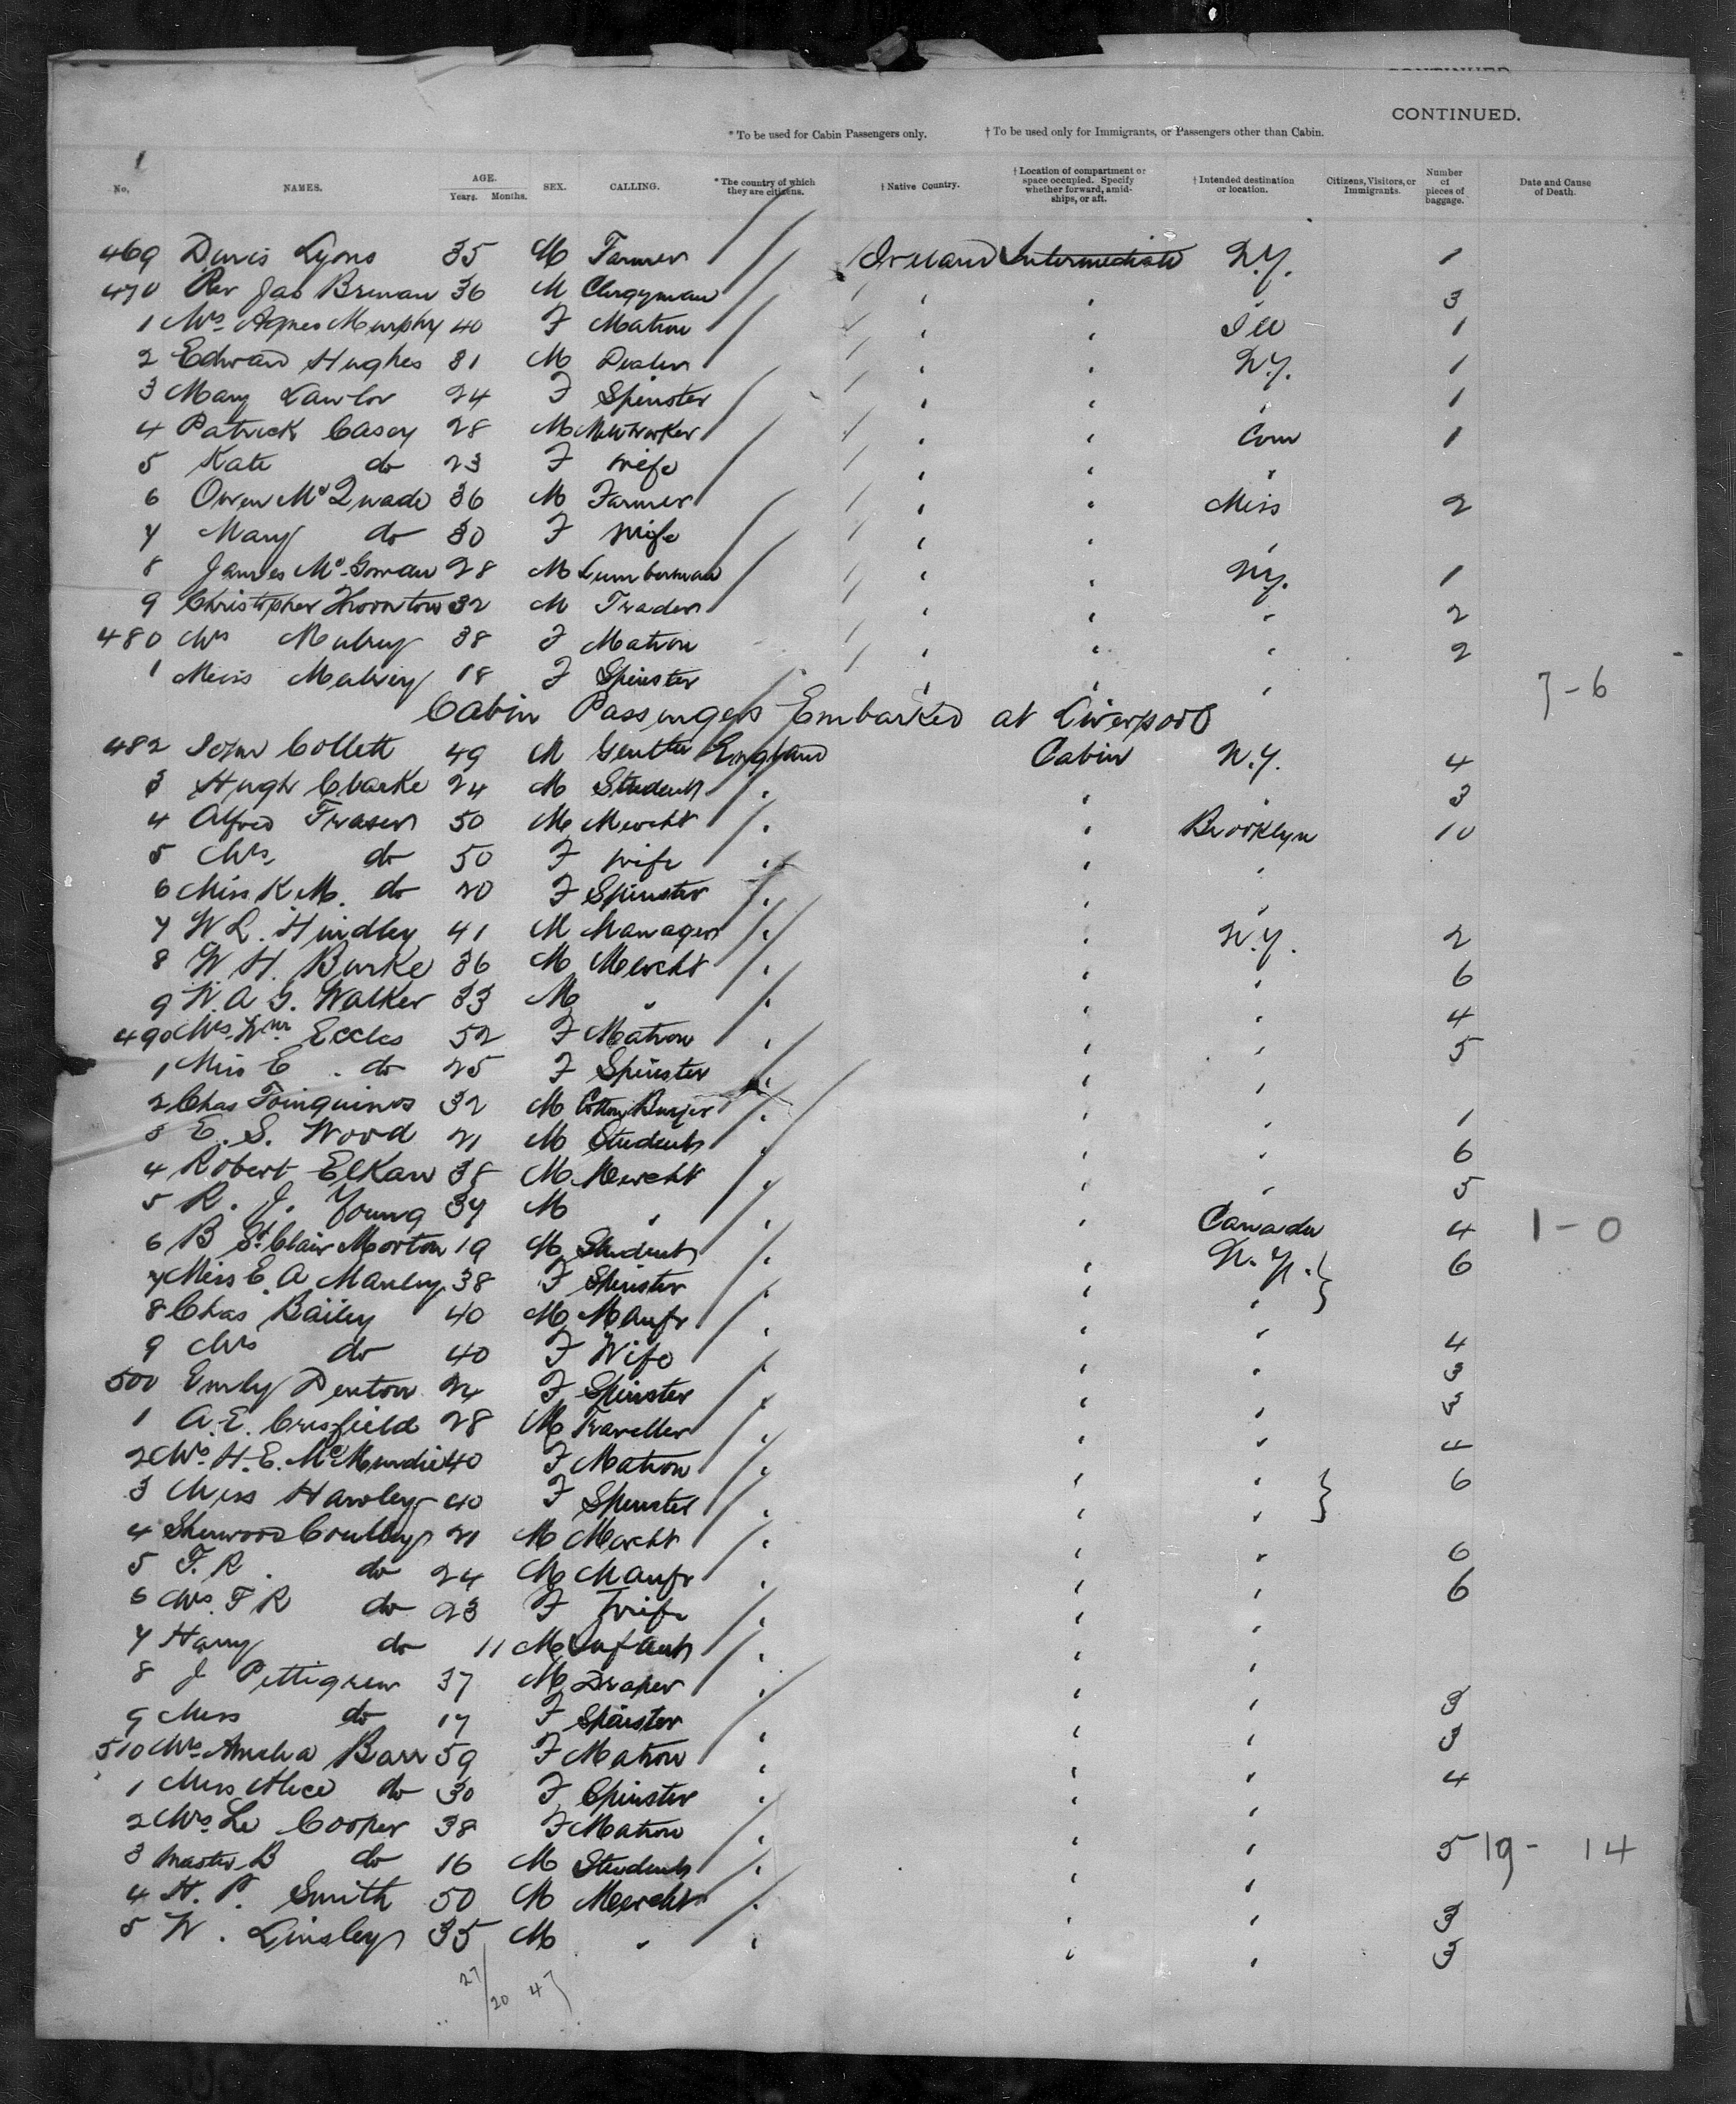 CONTINUED.
* To be used for Cabin Passengers only. † To be used only for Immigrants, or Passengers other than Cabin.
No. NAMES. AGE. Years. Months. SEX. CALLING. * The country of which they are citizens. † Native Country. † Location of compartment or space occupied. Specify whether forward, amidships, or aft. † Intended destination or location. Citizens, Visitors, or Immigrants. Number of pieces of baggage. Date and Cause of Death.
469 Denis Lyons 35 M Farmer Ireland Intermediate N.Y. 1
470 Rev Jas Brenan 36 M Clergyman " " " 3
1 Mrs Agnes Murphy 40 F Matron " " Ill 1
2 Edward Hughes 31 M Dealer " " N.Y. 1
3 Mary Lawlor 24 F Spinster " " " 1
4 Patrick Casey 28 M Millworker " " Con 1
5 Kate do 23 F wife " " "
6 Owen McQuade 36 M Farmer " " Miss 2
7 Mary do 30 F wife " " "
8 James McGowan 28 M Lumberman " " N.Y. 1
9 Christopher Thornton 32 M Trader " " " 2
480 Mrs Mulvey 38 F Matron " " " 2
1 Miss Mulvey 18 F Spinster " " " 7-6
Cabin Passengers Embarked at Liverpool
482 John Collett 49 M Gentln England Cabin N.Y. 4
3 Hugh Clarke 24 M Student " " " 3
4 Alfred Fraser 50 M Mercht " " Brooklyn 10
5 Mrs do 50 F wife " " "
6 Miss K.M. do 20 F Spinster " " "
7 W L. Hindley 41 M Manager " " N.Y. 2
8 W H. Burke 36 M Mercht " " " 6
9 W. A. G. Walker 33 M " " " " 4
490 Mrs Wm Eccles 52 F Matron " " " 5
1 Miss E. do 25 F Spinster " " "
2 Chas 32 M Cotton Buyer " " " 1
3 E. S. Wood 21 M Student " " " 6
4 Robert Elkan 38 M Mercht " " " 5
5 R. J. Young 37 M " " " Canada 4 1-0
6 B St. Clair Morton 19 M Student " " N.Y. 6
7 Miss E. A Manley 38 F Spinster " " "
8 Chas Bailey 40 M Manfr " " " 4
9 Mrs do 40 F Wife " " " 3
500 Emily Denton 24 F Spinster " " " 3
1 A. E. Crisfield 28 M Traveller " " " 4
2 Mrs. H. E. McMurdie 40 F Matron " " " 6
3 Miss Hawley 40 F Spinster " " "
4 Sherwood 21 M Mercht " " " 6
5 F. R. do 24 M Manfr " " " 6
6 Mrs. F R do 23 F wife " " "
7 Harry do 11 M Infant " " "
8 J Pettigrew 37 M Draper " " " 3
9 Miss do 17 F Spinster " " " 3
510 Mrs. Amelia Barr 59 F Matron " " " 4
1 Miss Alice do 30 F Spinster " " "
2 Mrs. Le Cooper 38 F Matron " " " 5 19-14
3 Master B do 16 M Student " " "
4 H. P. Smith 50 M Mercht " " " 3
5 W. Linsley 35 M " " " " 3
27/20 47